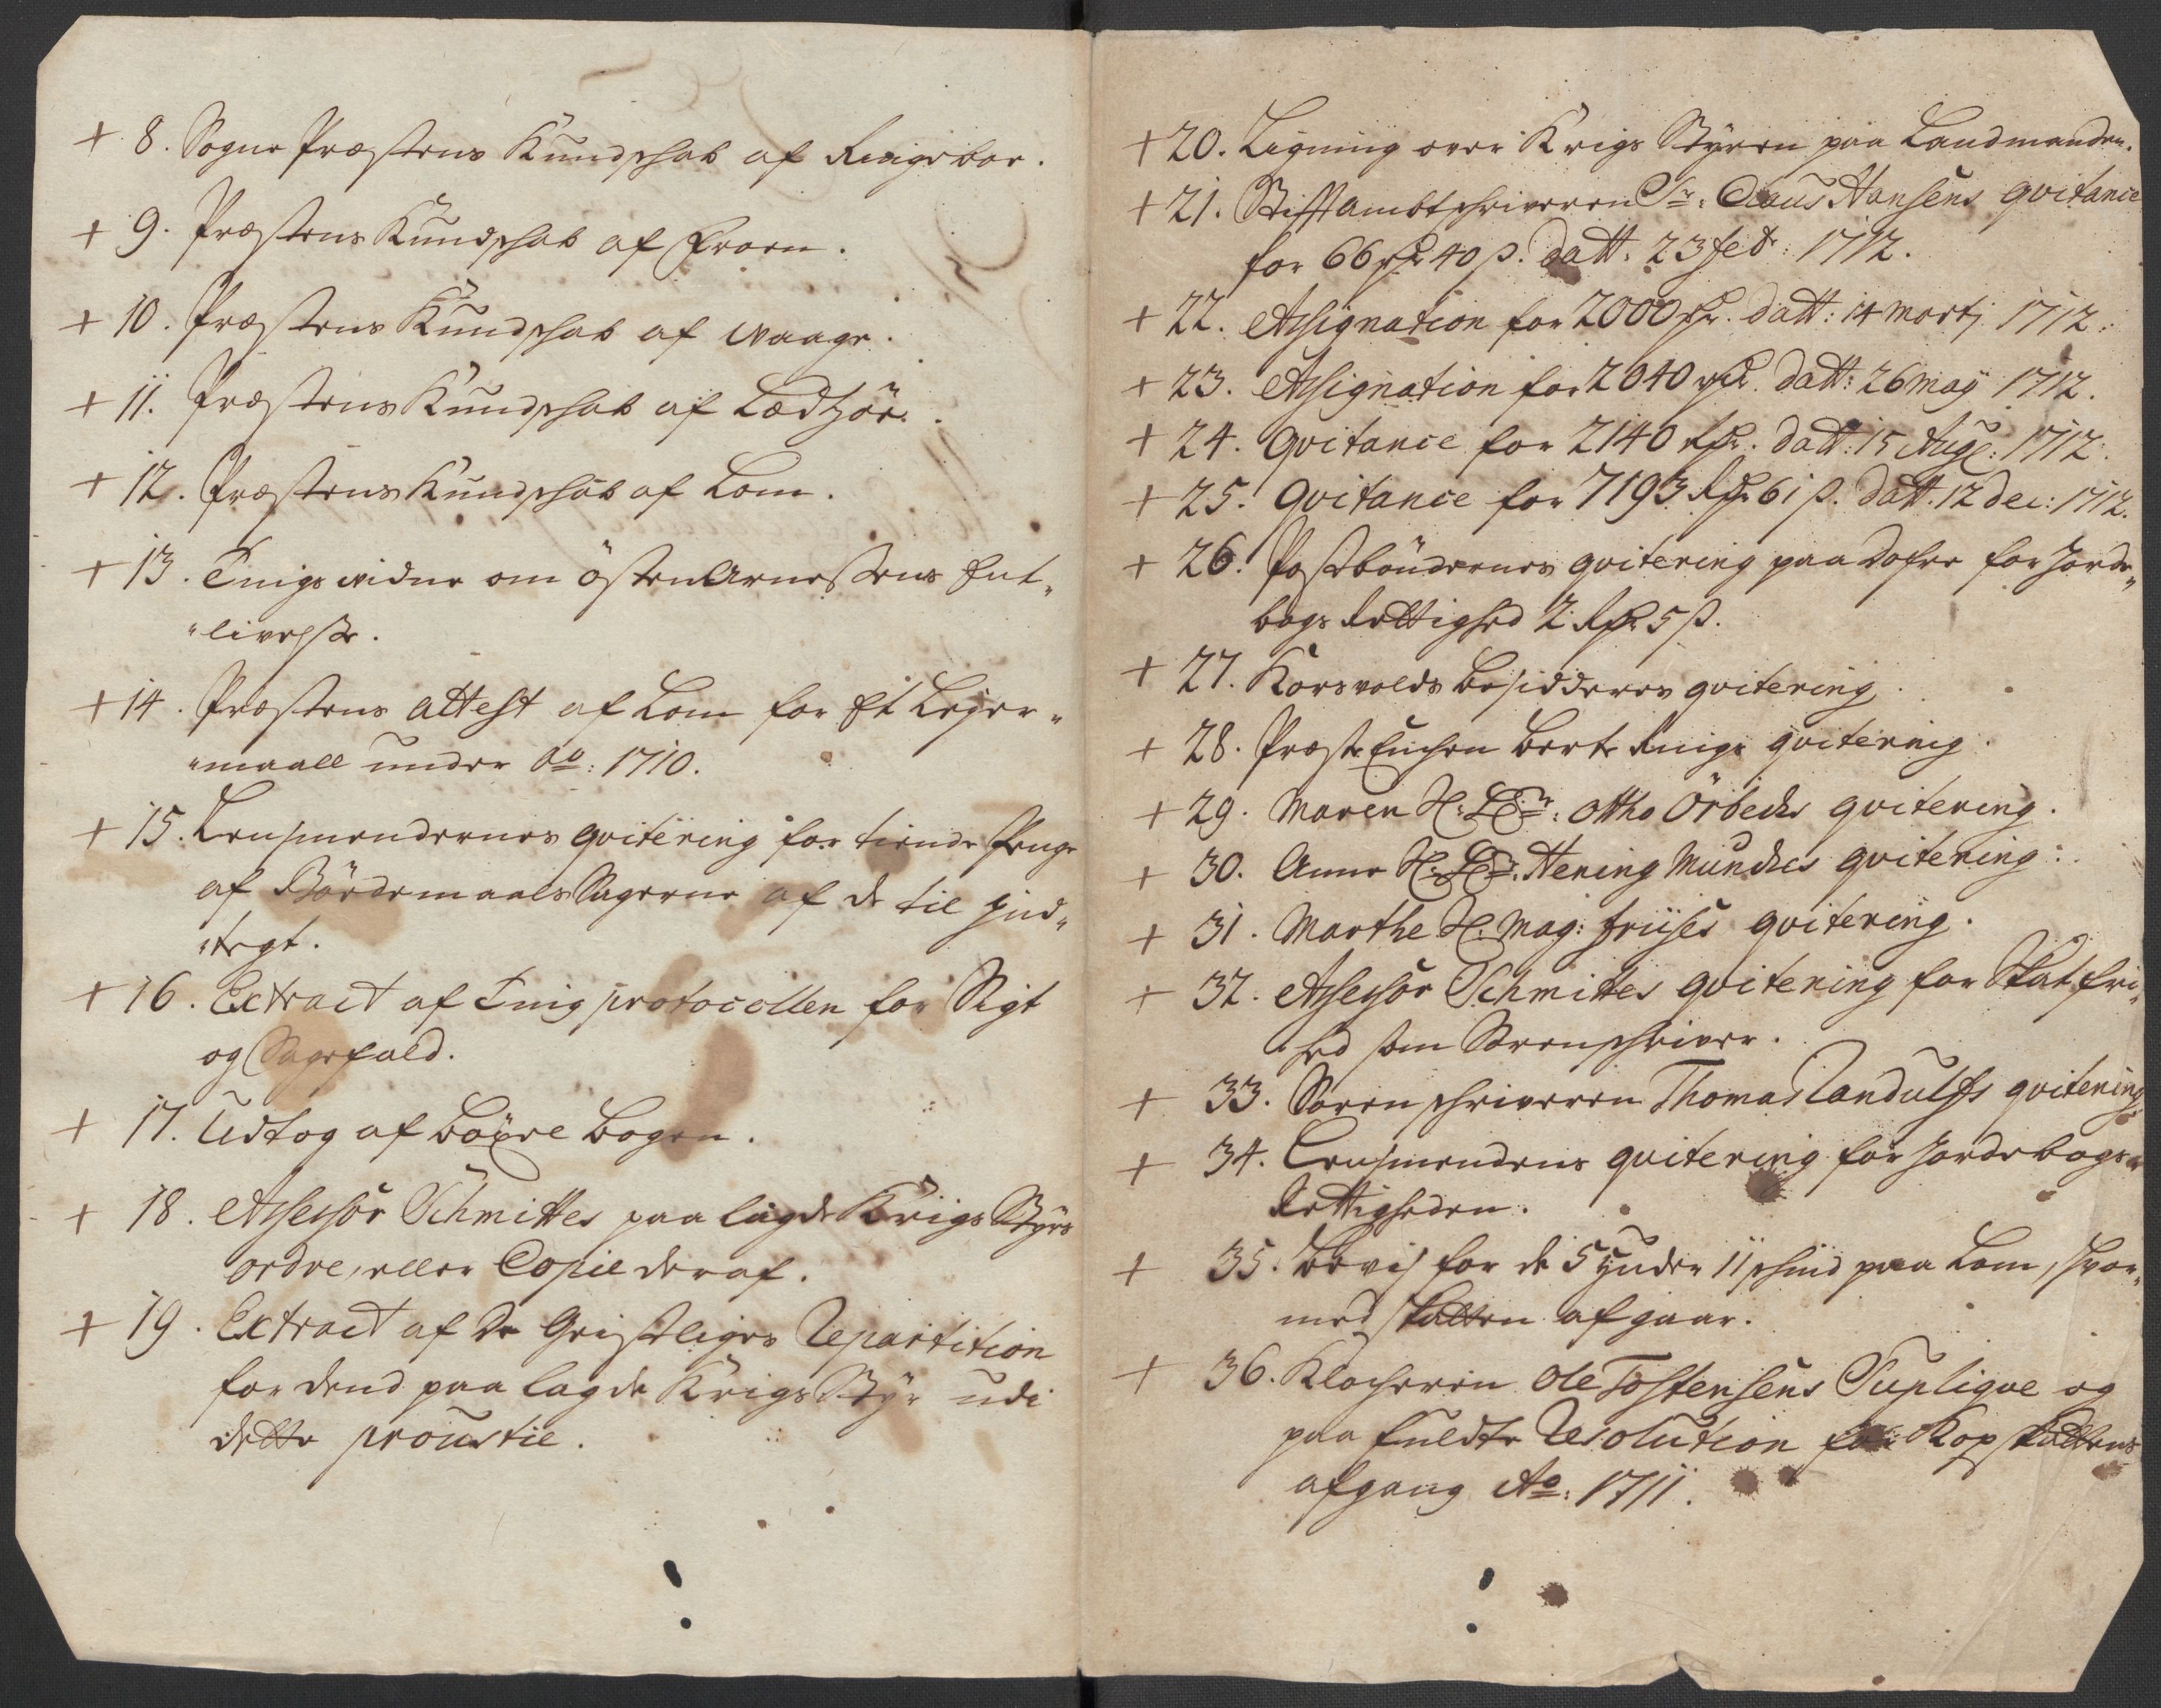 + 8. Sogne Præstens Kundschab af Ringeboe.
+ 9. Præstens Kundschab af Froen.
+ 10. Præstens Kundschab af Waage.
+ 11. Præstens Kundschab af Læsøe.
+ 12. Præstens Kundschab af Lom.
+ 13. Tings widne om Østen Arnessens Ent„
„livelse.
+ 14. Præstens attest af Lom for Et Leger„
„maall under Ao: 1710.
+ 15. Lensmendernes qvitering for tiende penge
af Bøxlemaals Sagerne af de til ind„
„tegt.
+ 16. Extract af Ting protocollen for Sigt
og Sagefald.
+ 17. Udtog af Odels Bogen.
+ 18. Assessor Schmittes paa lagde Krigs Styrs
ordre, eller Copie deraf.
+ 19. Extract af De Geistliges Repartition
for dend paa lagde Krigs Styr udi
dette proustie.
+ 20. Ligning over Krigs Styren paa Landmanden.
+ 21. Stifftambtschriveren Sr: Claus Hansens qvitance
for 66 rdr 40 s. datt: 23 feb: 1712.
+ 22. Assignation for 2000 rdr. datt: 14 martj 1712.
+ 23. Assignation for 2040 rdr. datt: 26 may 1712.
+ 24. Qvitance for 2140 Rdr. datt: 15 Aug: 1712.
+ 25. Qvitance for 7193 Rdr 61 s. datt. 12 dec: 1712.
+ 26. Postbøndernes qvitering paa Dofre for Jorde„
bogs Rettighed 2 Rdr 5 s.
+ 27. Korsvolds besidderes qvitering.
+ 28. Præste Enchen Berte Rings qvitering.
+ 29. Maren Sl: Hr: Otto Ørbechs qvitering.
+ 30. Anne Sl: Hr: Hening Munches qvitering.
+ 31. Marthe Sl: Mag: friises qvitering.
+ 32. Assessor Schmittes qvitering for Skatfri„
„hed som Sorenschriver.
+ 33. Sorenschriveren Thomas Landulfs qvitering
+ 34. Lensmendens qvitering for Jordebogs„
Rettigheden.
+ 35. Bevis for de 5 huder 11 schind paa Lom, hvor„
med skatten afgaar.
+ 36. Klocheren Ole Tostensens Suplique og
paa fuldte Resolution for Kopskattens
afgang Ao: 1711.